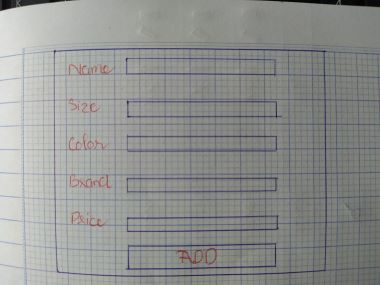 Name
Size
Color
Brand
Price
ADD